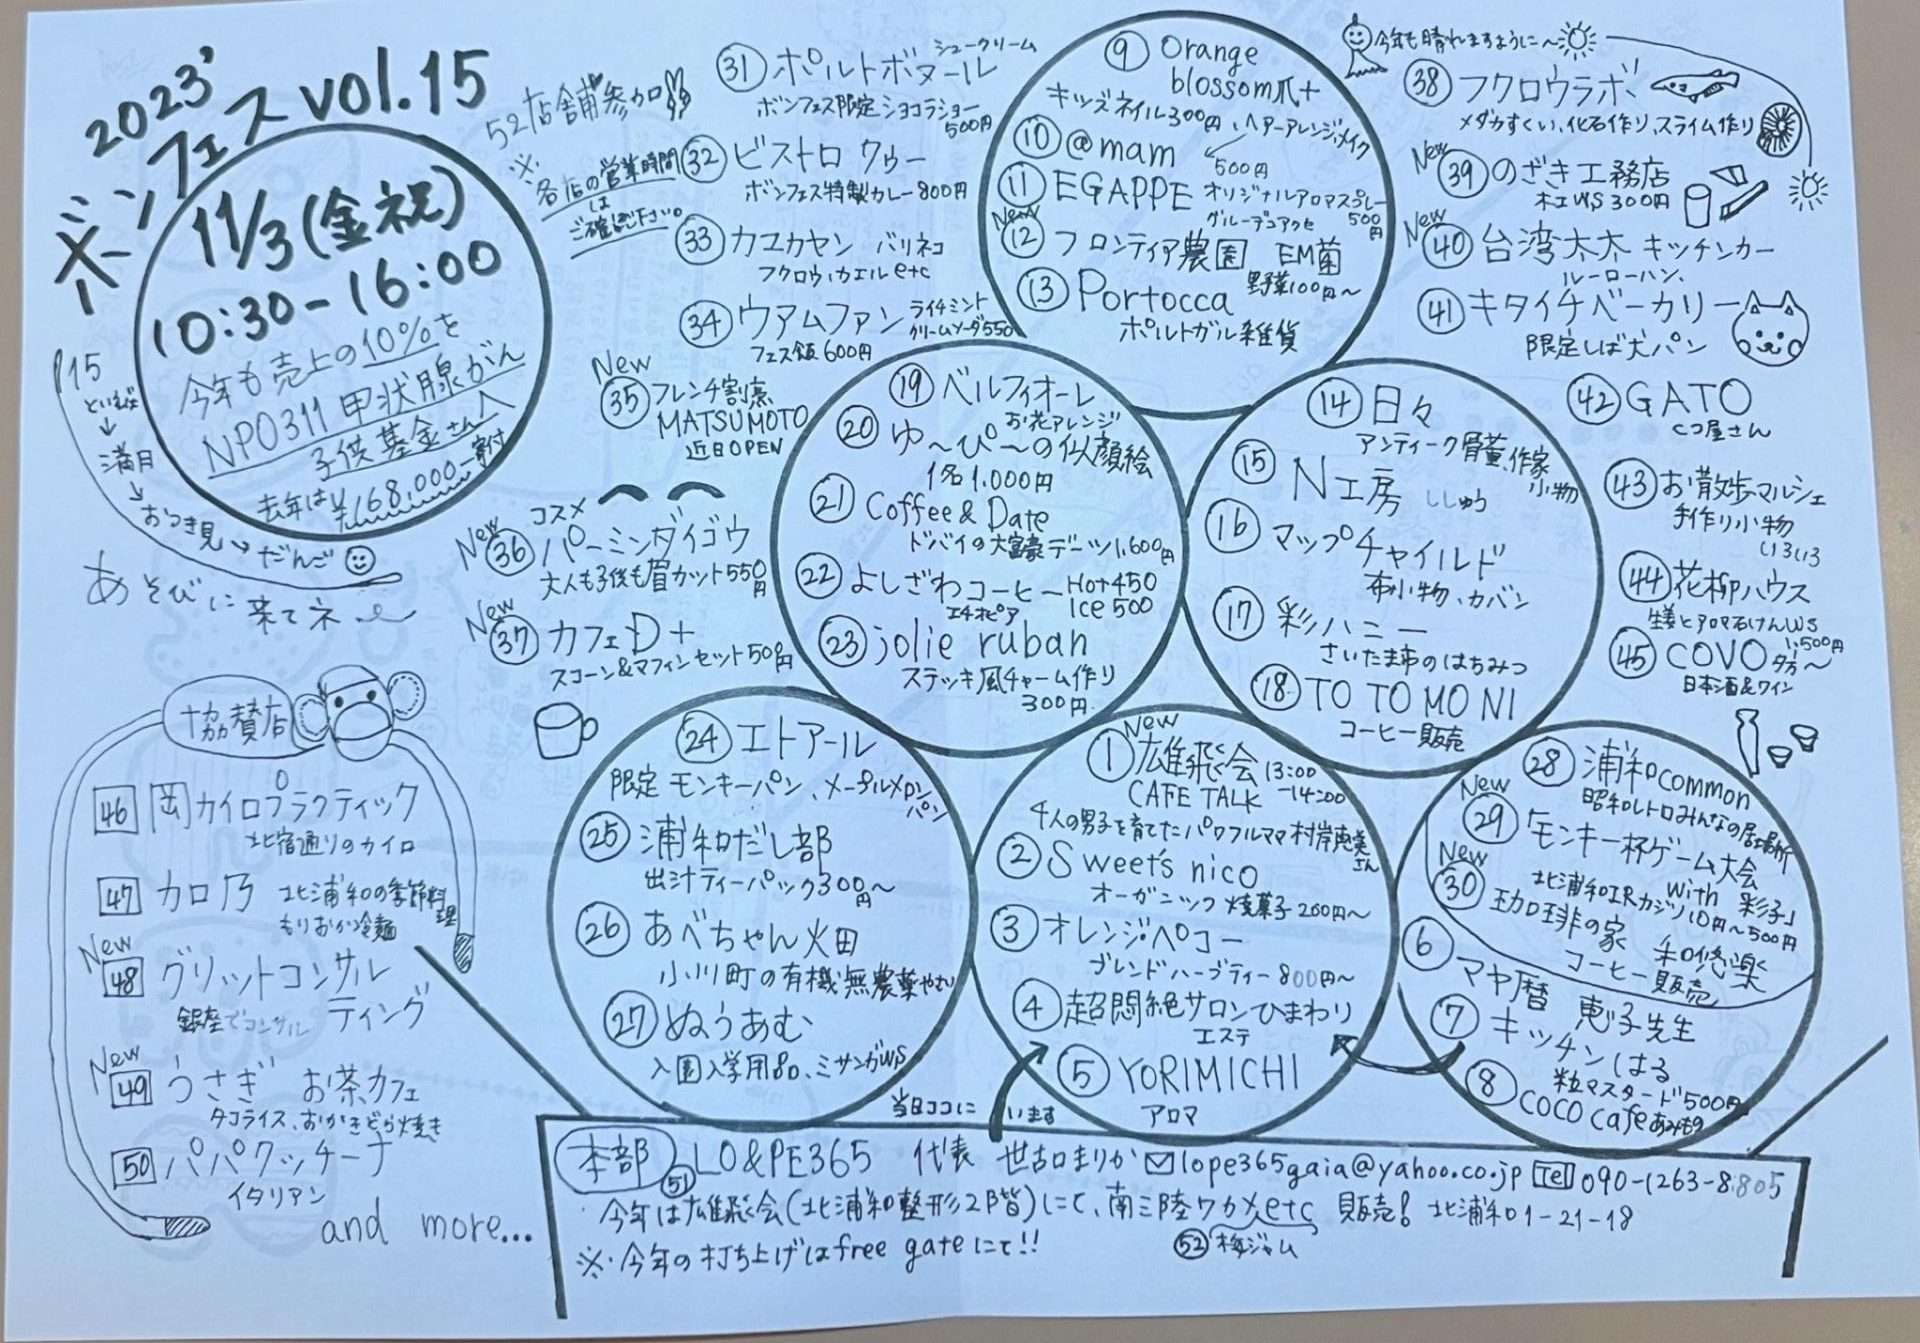 2023'
ボンフェス vol.15
11/3(金祝)
10:30-16:00
今年も売上の10%を
NPO311甲状腺がん
子供基金さんへ
去年は¥168,000-寄付
といえば
満月
おつき見
だんご
あそびに
来てネ
52店舗参加
※各店の営業時間
は
ご確認下さい。
㉛ ポルトボヌール シュークリーム
ボンフェス限定ショコラショー
500円
㉜ ビストロ クゥー
ボンフェス特製カレー800円
㉝ カユカヤン バリネコ
フクロウ、カエルetc
㉞ ウアムファン ライチミント
クリームソーダ550
フェス飯600円
New
㉟ フレンチ割烹
MATSUMOTO
近日OPEN
コスメ
New
㊱ パーミンダイゴウ
大人も子供も眉カット550円
New
㊲ カフェD+
スコーン&マフィンセット500円
⑨ Orange
blossom爪+
キッズネイル300円、ヘアーアレンジ、メイク
500円
⑩ @mam
⑪ EGAPPE オリジナルアロマスプレー
500円
グルーデコアクセ
New
⑫ フロンティア農園 EM菌
野菜100円〜
⑬ Portocca
ポルトガル雑貨
⑲ ベルフィオーレ
お花アレンジ
⑳ ゆ〜ぴ〜の似顔絵
1名1.000円
㉑ Coffee & Date
ドバイの大富豪デーツ1,600円
㉒ よしざわコーヒー Hot450
エチオピア Ice 500
㉓ jolie ruban
ステッキ風チャーム作り
300円
⑭ 日々
アンティーク骨董、作家
小物
⑮ N工房 ししゅう
⑯ マップチャイルド
布小物、カバン
⑰ 彩ハニー
さいたま市のはちみつ
⑱ TO TO MO NI
コーヒー販売
今年も晴れますように〜
㊳ フクロウラボ
メダカすくい、化石作り、スライム作り
New
㊴ のざき工務店
木工WS300円
New
㊵ 台湾太太 キッチンカー
ルーローハン、
㊶ キタイチベーカリー
限定しば犬パン
㊷ GATO
㊸ お散歩マルシェ
手作り小物
いろいろ
㊹ 花柳ハウス
生姜とアロマ石けんWS
1,500円
㊺ COVO 夕方〜
日本酒&ワイン
㉔ エトアール
限定モンキーパン、メープルメロン
パン
㉕ 浦和だし部
出汁ティーパック300円〜
㉖ あべちゃん火田
小川町の有機無農薬やさい
㉗ ぬうあむ
入園入学用品、ミサンガWS
New
① 雄飛会 13:00
-14:00
CAFE TALK
4人の男子を育てたパワフルママ村岸恵美さん
② Sweet's nico
オーガニック焼菓子200円〜
③ オレンジペコー
ブレンドハーブティー800円〜
④ 超悶絶サロンひまわり
エステ
⑤ YORIMICHI
アロマ
㉘ 浦和common
昭和レトロみんなの居場所
New
㉙ 「モンキー杯ゲーム大会
with 彩子」
北浦和IRカジノ10円〜500円
New
㉚ 珈琲の家 和悠楽
コーヒー販売
⑥ マヤ暦 恵子先生
⑦ キッチンはる
粒マスタード500円
⑧ coco cafe あみもの
協賛店
46 岡カイロプラクティック
北宿通りのカイロ
47 カロ乃 北浦和の季節料理
もりおか冷麺
New
48 グリットコンサル
ティング
銀座でコンサル
New
49 うさぎ お茶カフェ
タコライス、おかきどら焼き
50 パパクッチーナ
イタリアン
and more...
当日ココに います
本部 LO&PE365 代表 世古口まりか lope365gaia@yahoo.co.jp Tel 090-1263-8805
51 今年は雄飛会(北浦和整形2階)にて、南三陸ワカメetc 販売! 北浦和1-21-18
52 梅ジャム
※今年の打ち上げはfree gateにて!!